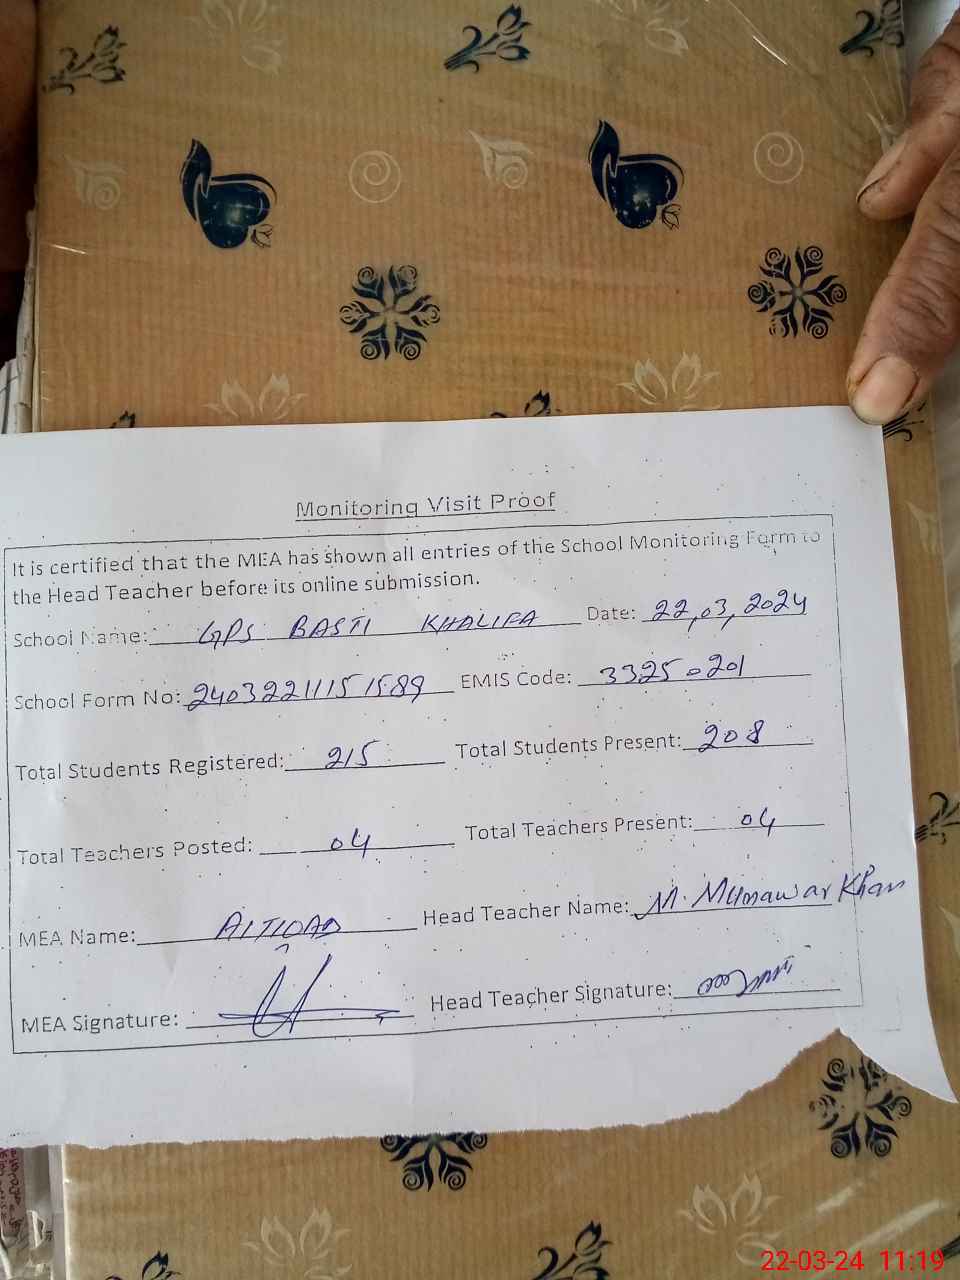 Monitoring Visit Proof
It is certified that the MEA has shown all entries of the School Monitoring Form to
the Head Teacher before its online submission.
School Name: GPS BASTI KHALIFA Date: 22,03,2024
School Form No: 2403221115 1589 EMIS Code: 33250201
Total Students Registered: 215 Total Students Present: 208
Total Teachers Posted: 04 Total Teachers Present: 04
MEA Name: Head Teacher Name: M. Munawar Khan
MEA Signature: Head Teacher Signature:
22-03-24 11:19